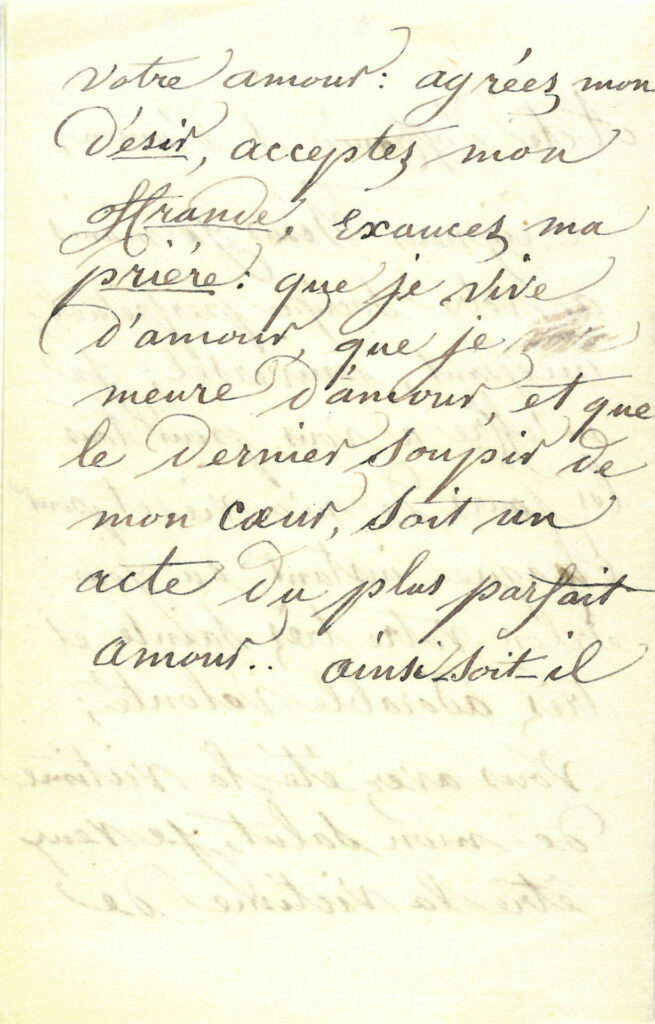 votre amour: agréez mon
désir, acceptez mon
offrande, exaucez ma
prière: que je vive
d'amour, que je
meure d'amour, et que
le dernier soupir de
mon cœur, soit un
acte du plus parfait
amour.. ainsi-soit-il